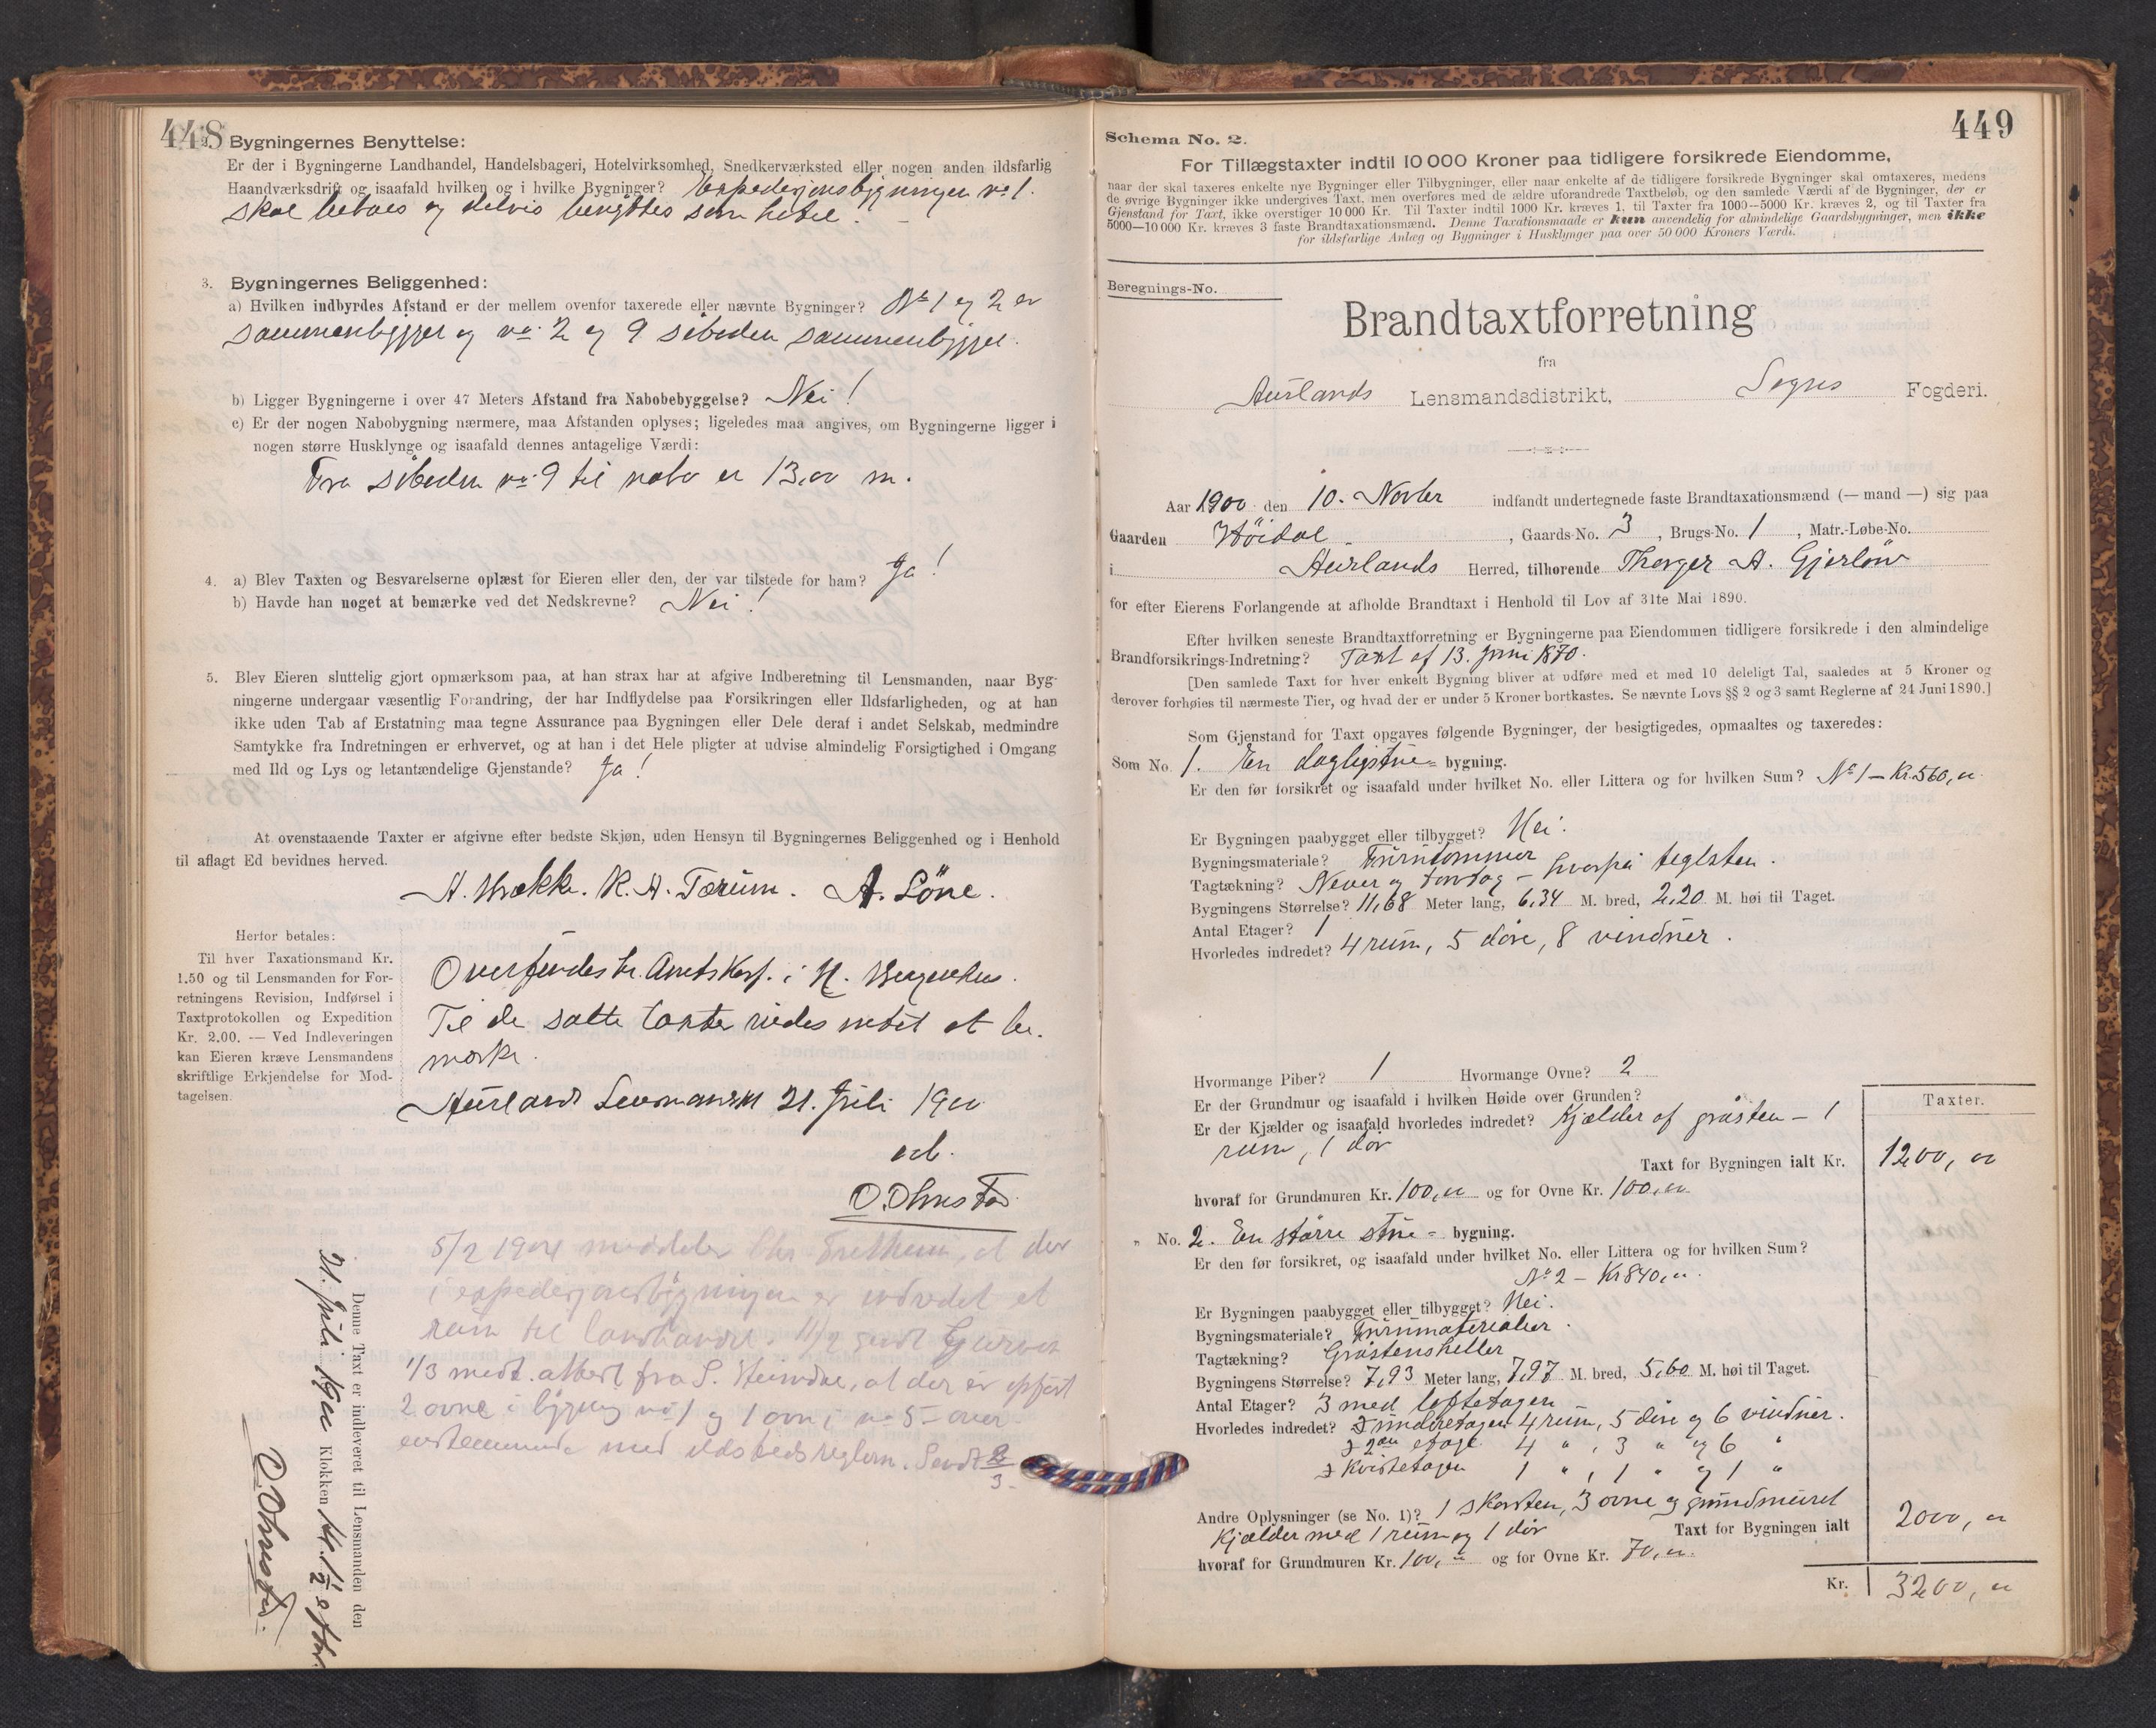 448
2. Bygningernes Benyttelse:
Er der i Bygningerne Landhandel, Handelsbageri, Hotelvirksomhed, Snedkerværksted eller nogen anden ildsfarlig
Haandværksdrift og isaafald hvilken og i hvilke Bygninger? Expedisjonsbygningen no 1.
skal beboes og delvis benyttes som hotel.
3. Bygningernes Beliggenhed:
a) Hvilken indbyrdes Afstand er der mellem ovenfor taxerede eller nævnte Bygninger? No 1 og 2 er
sammenbygget og no 2 og 9 søboden sammenbygget.
b) Ligger Bygningerne i over 47 Meters Afstand fra Nabobebyggelse? Nei!
c) Er der nogen Nabobygning nærmere, maa Afstanden oplyses; ligeledes maa angives, om Bygningerne ligger i
nogen større Husklynge og isaafald dennes antagelige Værdi:
Fra søboden no 9 til nabo er 13,00 m.
4. a) Blev Taxten og Besvarelserne oplæst for Eieren eller den, der var tilstede for ham? Ja!
b) Havde han noget at bemærke ved det Nedskrevne? Nei!
5. Blev Eieren sluttelig gjort opmærksom paa, at han strax har at afgive Indberetning til Lensmanden, naar Byg-
ningerne undergaar væsentlig Forandring, der har Indflydelse paa Forsikringen eller Ildsfarligheden, og at han
ikke uden Tab af Erstatning maa tegne Assurance paa Bygningen eller Dele deraf i andet Selskab, medmindre
Samtykke fra Indretningen er erhvervet, og at han i det Hele pligter at udvise almindelig Forsigtighed i Omgang
med Ild og Lys og letantændelige Gjenstande? Ja!
At ovenstaaende Taxter er afgivne efter bedste Skjøn, uden Hensyn til Bygningernes Beliggenhed og i Henhold
til aflagt Ed bevidnes herved.
A. Brække. K. A. Tærum. A. Løne.
Herfor betales:
Til hver Taxationsmand Kr.
1.50 og til Lensmanden for For-
retningens Revision, Indførsel i
Taxtprotokollen og Expedition
Kr. 2.00. — Ved Indleveringen
kan Eieren kræve Lensmandens
skriftlige Erkjendelse for Mod-
tagelsen.
Oversendes hr. Amtskasf. i N. Bergenhus.
Til de satte taxter vides intet at be-
mærke.
Aurland Lensmanskt 21. Juli 1900
O. Ohnstad
5/2 1901 meddeler Chr Fretheim, at der
i expedisjonsbygningen er indredet et
rum til landhandel. 11/2 sendt
1/3 medt. attest fra S. Steindal, at der er opført
2 ovne i bygning no 1 og 1 ovn i no 5 - over
enstemmende med ildstedsreglem. Sendt 2/3.
Denne Taxt er indleveret til Lensmanden den
21. Juli 1900 Klokken kl. 1½ efterm.
O. Ohnstad.
449
Schema No. 2.
For Tillægstaxter indtil 10 000 Kroner paa tidligere forsikrede Eiendomme,
naar der skal taxeres enkelte nye Bygninger eller Tilbygninger, eller naar enkelte af de tidligere forsikrede Bygninger skal omtaxeres, medens
de øvrige Bygninger ikke undergives Taxt, men overføres med de ældre uforandrede Taxtbeløb, og den samlede Værdi af de Bygninger, der er
Gjenstand for Taxt, ikke overstiger 10 000 Kr. Til Taxter indtil 1000 Kr. kræves 1, til Taxter fra 1000—5000 Kr. kræves 2, og til Taxter fra
5000—10 000 Kr. kræves 3 faste Brandtaxationsmænd. Denne Taxationsmaade er kun anvendelig for almindelige Gaardsbygninger, men ikke
for ildsfarlige Anlæg og Bygninger i Husklynger paa over 50 000 Kroners Værdi.
Beregnings-No.
Brandtaxtforretning
fra
Aurlands Lensmandsdistrikt, Sogns Fogderi.
Aar 1900 den 10. Novbr indfandt undertegnede faste Brandtaxationsmænd (— mand —) sig paa
Gaarden Høidal, Gaards-No. 3, Brugs-No. 1, Matr.-Løbe-No.
i Aurlands Herred, tilhørende Thorger A. Gjerløw
for efter Eierens Forlangende at afholde Brandtaxt i Henhold til Lov af 31te Mai 1890.
Efter hvilken seneste Brandtaxtforretning er Bygningerne paa Eiendommen tidligere forsikrede i den almindelige
Brandforsikrings-Indretning? Taxt af 13. Juni 1870.
[Den samlede Taxt for hver enkelt Bygning bliver at udføre med et med 10 deleligt Tal, saaledes at 5 Kroner og
derover forhøies til nærmeste Tier, og hvad der er under 5 Kroner bortkastes. Se nævnte Lovs §§ 2 og 3 samt Reglerne af 24 Juni 1890.]
Som Gjenstand for Taxt opgaves følgende Bygninger, der besigtigedes, opmaaltes og taxeredes:
Som No. 1. En dagligstue= bygning.
Er den før forsikret og isaafald under hvilket No. eller Littera og for hvilken Sum? No 1 — Kr. 560,00
Er Bygningen paabygget eller tilbygget? Nei.
Bygningsmateriale? Furutømmer
Tagtækning? Never og tortag — hvorpå teglsten.
Bygningens Størrelse? 11,68 Meter lang, 6,34 M. bred, 2,20 M. høi til Taget.
Antal Etager? 1
Hvorledes indredet? 4 rum, 5 døre, 8 vinduer.
Hvormange Piber? 1 Hvormange Ovne? 2
Er der Grundmur og isaafald i hvilken Høide over Grunden?
Er der Kjælder og isaafald hvorledes indredet? Kjælder af gråsten — 1
rum, 1 dør
Taxter.
Taxt for Bygningen ialt Kr. 1200,00
hvoraf for Grundmuren Kr. 100,00 og for Ovne Kr. 100,00
" No. 2. En større stue= bygning.
Er den før forsikret, og isaafald under hvilket No. eller Littera og for hvilken Sum?
No 2 — Kr 840,00.
Er Bygningen paabygget eller tilbygget? Nei.
Bygningsmateriale? Furumaterialier.
Tagtækning? Gråstensheller
Bygningens Størrelse? 7,93 Meter lang, 7,97 M. bred, 5,60 M. høi til Taget.
Antal Etager? 3 med loftetagen
Hvorledes indredet? I underetagen 4 rum, 5 døre og 6 vinduer.
I 2den etage 4 " , 3 " og 6 "
I Kvistetagen 1 " , 1 " og 1 "
Andre Oplysninger (se No. 1)? 1 skorsten, 3 ovne og grundmuret
Kjælder med 1 rum og 1 dør Taxt for Bygningen ialt 2000,00
hvoraf for Grundmuren Kr. 100,00 og for Ovne Kr. 70,00.
Kr. 3200,00